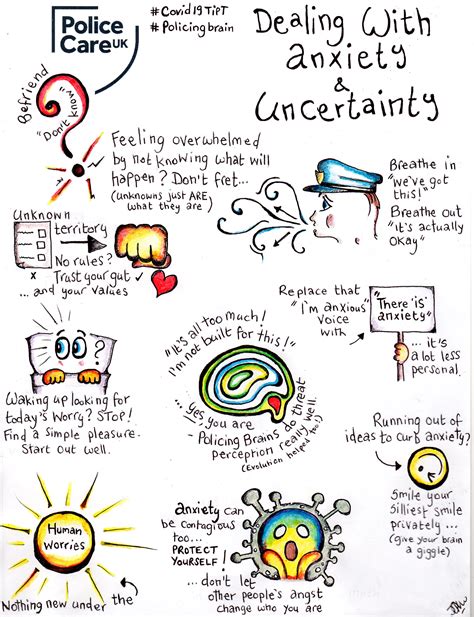 Police
Care UK
#Covid19TiPT
#Policingbrain
Dealing With
anxiety
&
Uncertainty
Befriend
"Don't know"
Feeling overwhelmed
by not knowing what will
happen? Don't fret...
(unknowns just ARE
what they are)
Breathe in
"we've got
this!"
Breathe out
"it's actually
OKay"
Unknown
territory
No rules?
x Trust your gut ✓
... and your values
"It's all too much!
I'm not built for this!"
... yes, you are
- Policing Brains do threat
perception really well.
(Evolution helped too!)
Replace that
"I'm anxious"
voice
with
"There 'is'
anxiety"
... it's
a lot less
personal.
?
Waking up looking for
today's worry? STOP!
Find a simple pleasure-
Start out well.
Running out of
ideas to curb anxiety?
Smile your
silliest smile
privately...
(give your brain
a giggle)
Human
worries
Nothing new under the
anxiety can
be contagious
too...
PROTECT
YOURSELF!
... don't let
other people's angst
change who you are